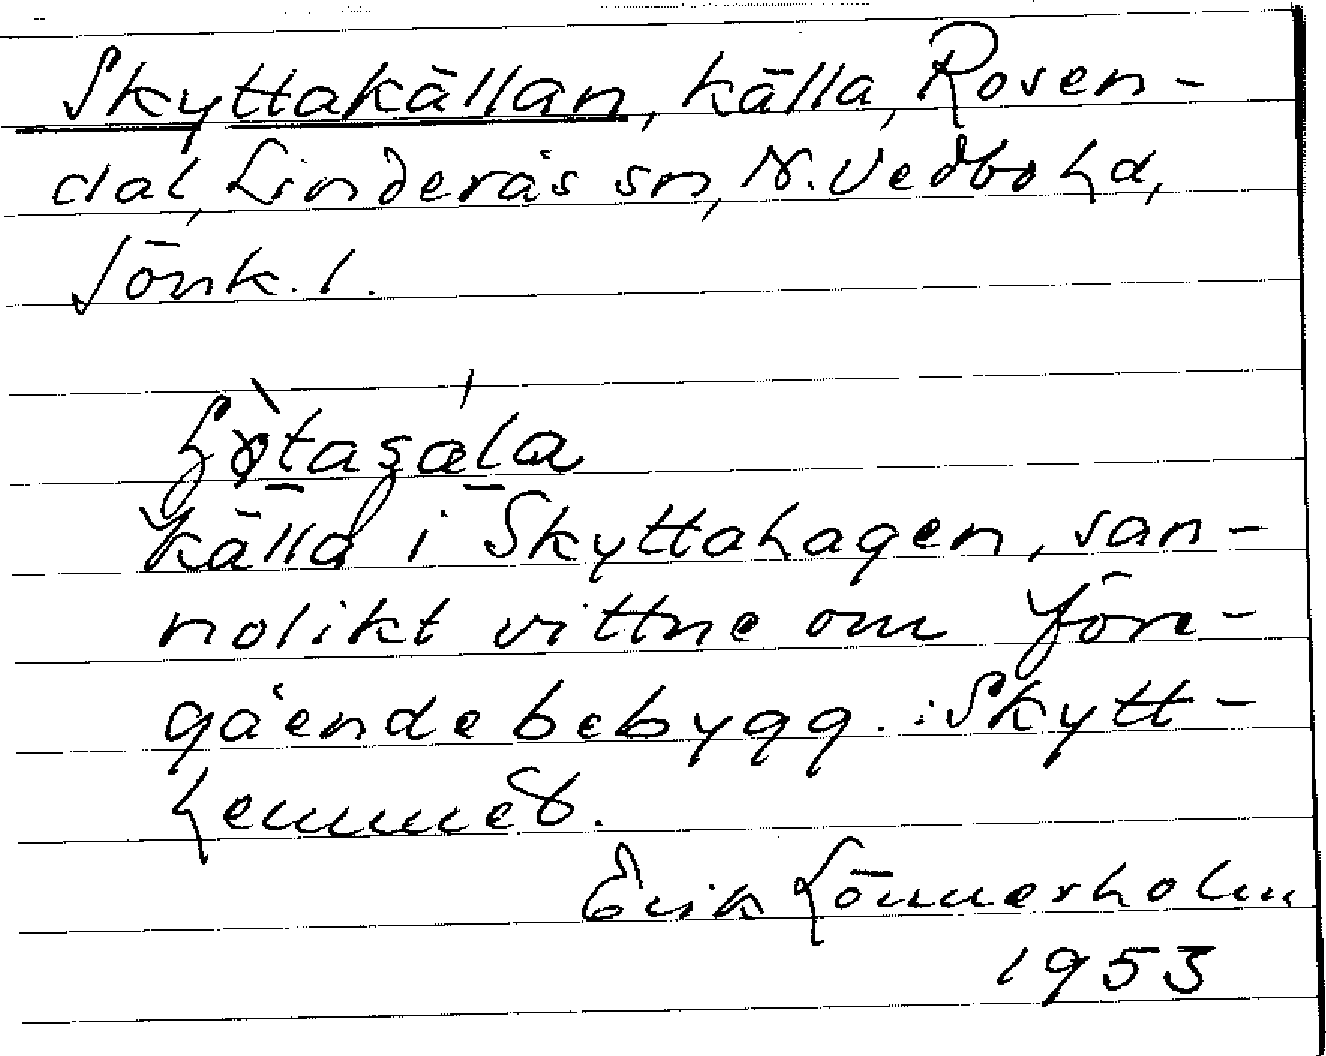 Skyttakällan, källa, Rosen-
dal, Linderås sn, N. Vedbo hd,
Jönk. l.
källa i Skyttahagen, san-
nolikt vittne om före-
gående bebygg. : Skytt-
hemmet.
Erik Lönnerholm
1953